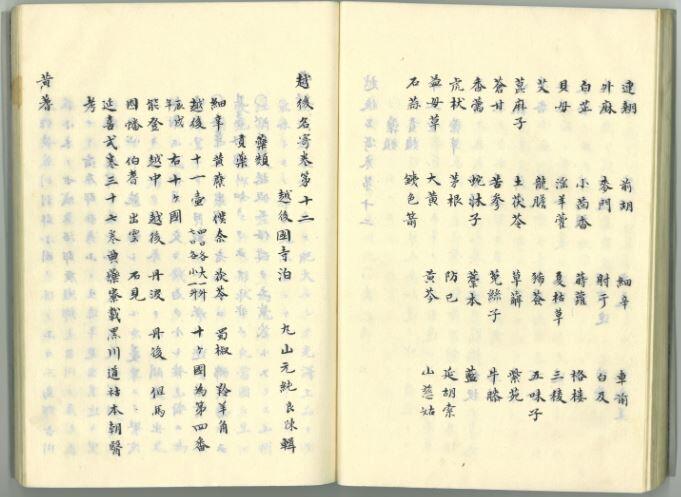 連翹 前胡 細辛 車前
升麻 麥門 射干 白及
白芷 小茴香 蒔蘿 栝樓
貝母 淫羊藿 夏枯草 三稜
艾 龍膽 豨薟 五味子
萆麻子 土茯苓 草薢 紫苑
苦参 菟絲子 牛膝
香薷 蛇牀子 藁本 藍
虎杖 茅根 防已 延胡索
益母草 大黄 黄芩 山慈姑
石蒜 鉄色箭
越後名寄巻第十二
越後國寺泊 丸山元純良陳輯
藥類
貢藥
細辛 黄蘗 僕奈 茯苓 蜀椒 羚羊角 五
越後 十一壷 十ヶ國為第四番
右十ヶ國
能登 越中 越後 丹波 丹後 但馬
因幡 伯耆 出雲 石見
延喜式巻三十七巻典藥寮載黒川道祐本朝醫
考
黄蓍